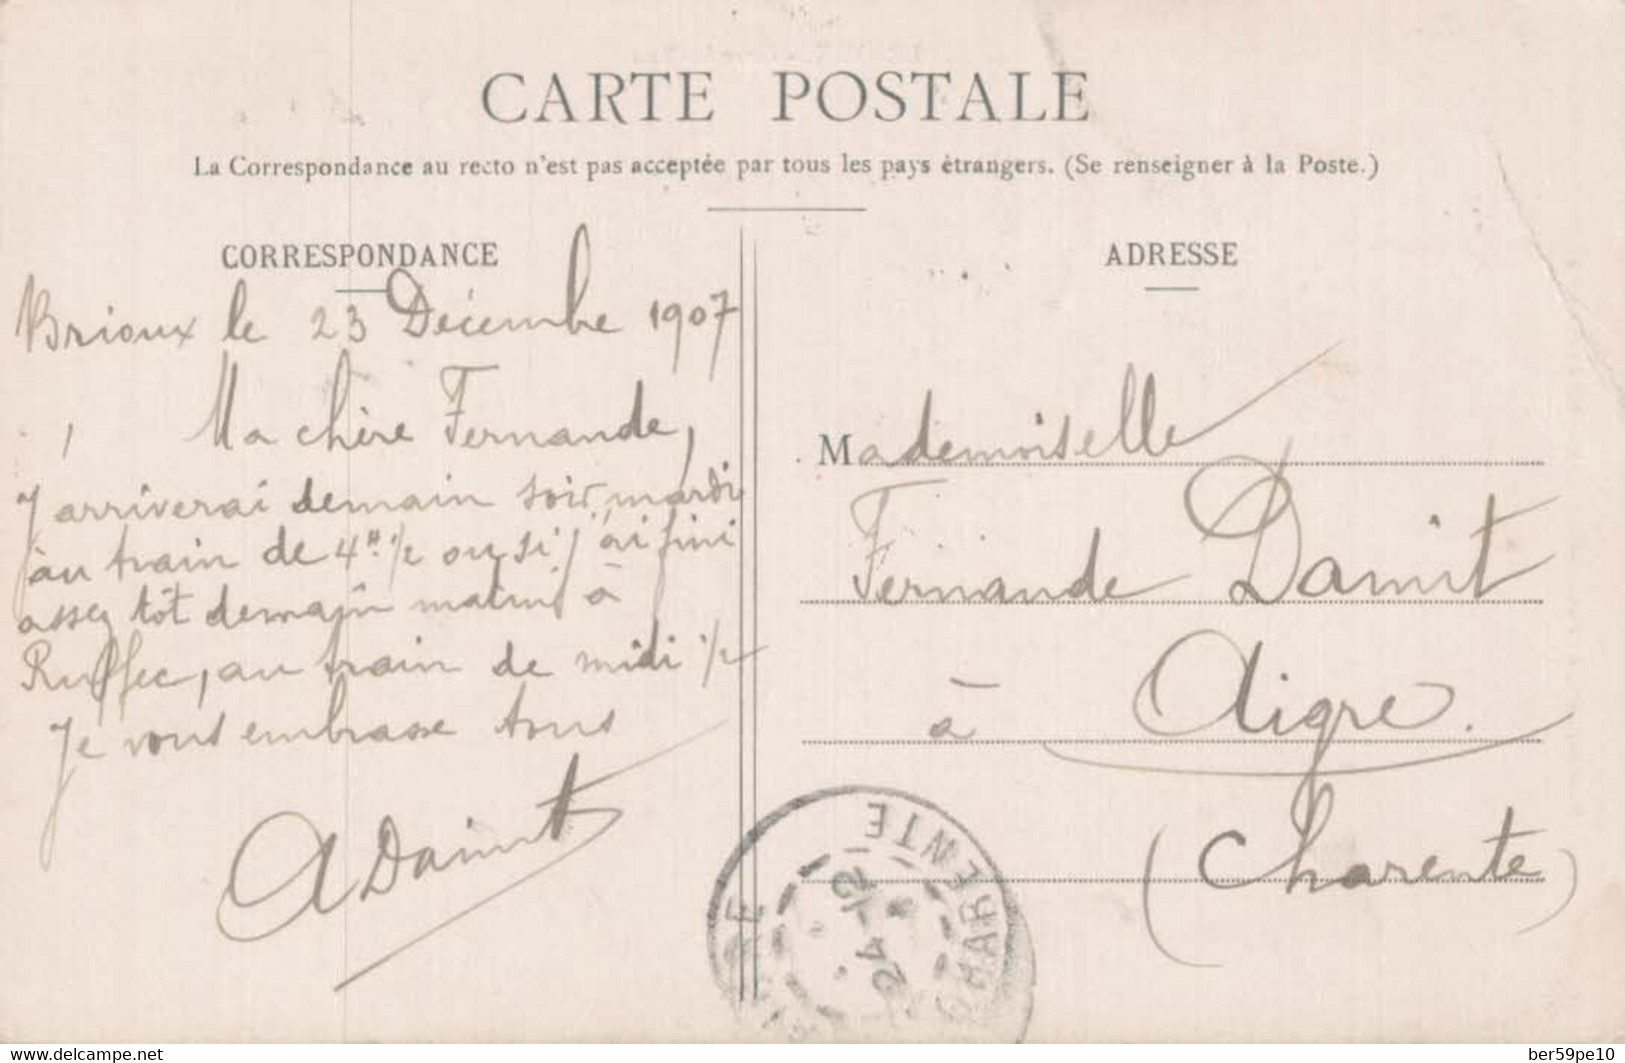 CARTE POSTALE
La Correspondance au recto n'est pas acceptée par tous les pays étrangers. (Se renseigner à la Poste.)
CORRESPONDANCE
Brioux le 23 Décembre 1907
Ma chère Fernande,
J'arriverai demain soir, mardi
au train de 4ʰ 1/2 ou si j'ai fini
assez tôt demain matin à
Ruffec, au train de midi 1/2
Je vous embrasse tous
ADamit
ADRESSE
Mademoiselle
Fernande Damit
à Aigre.
(Charente)
CHARENTE
24-12
www.delcampe.net
ber59pe10